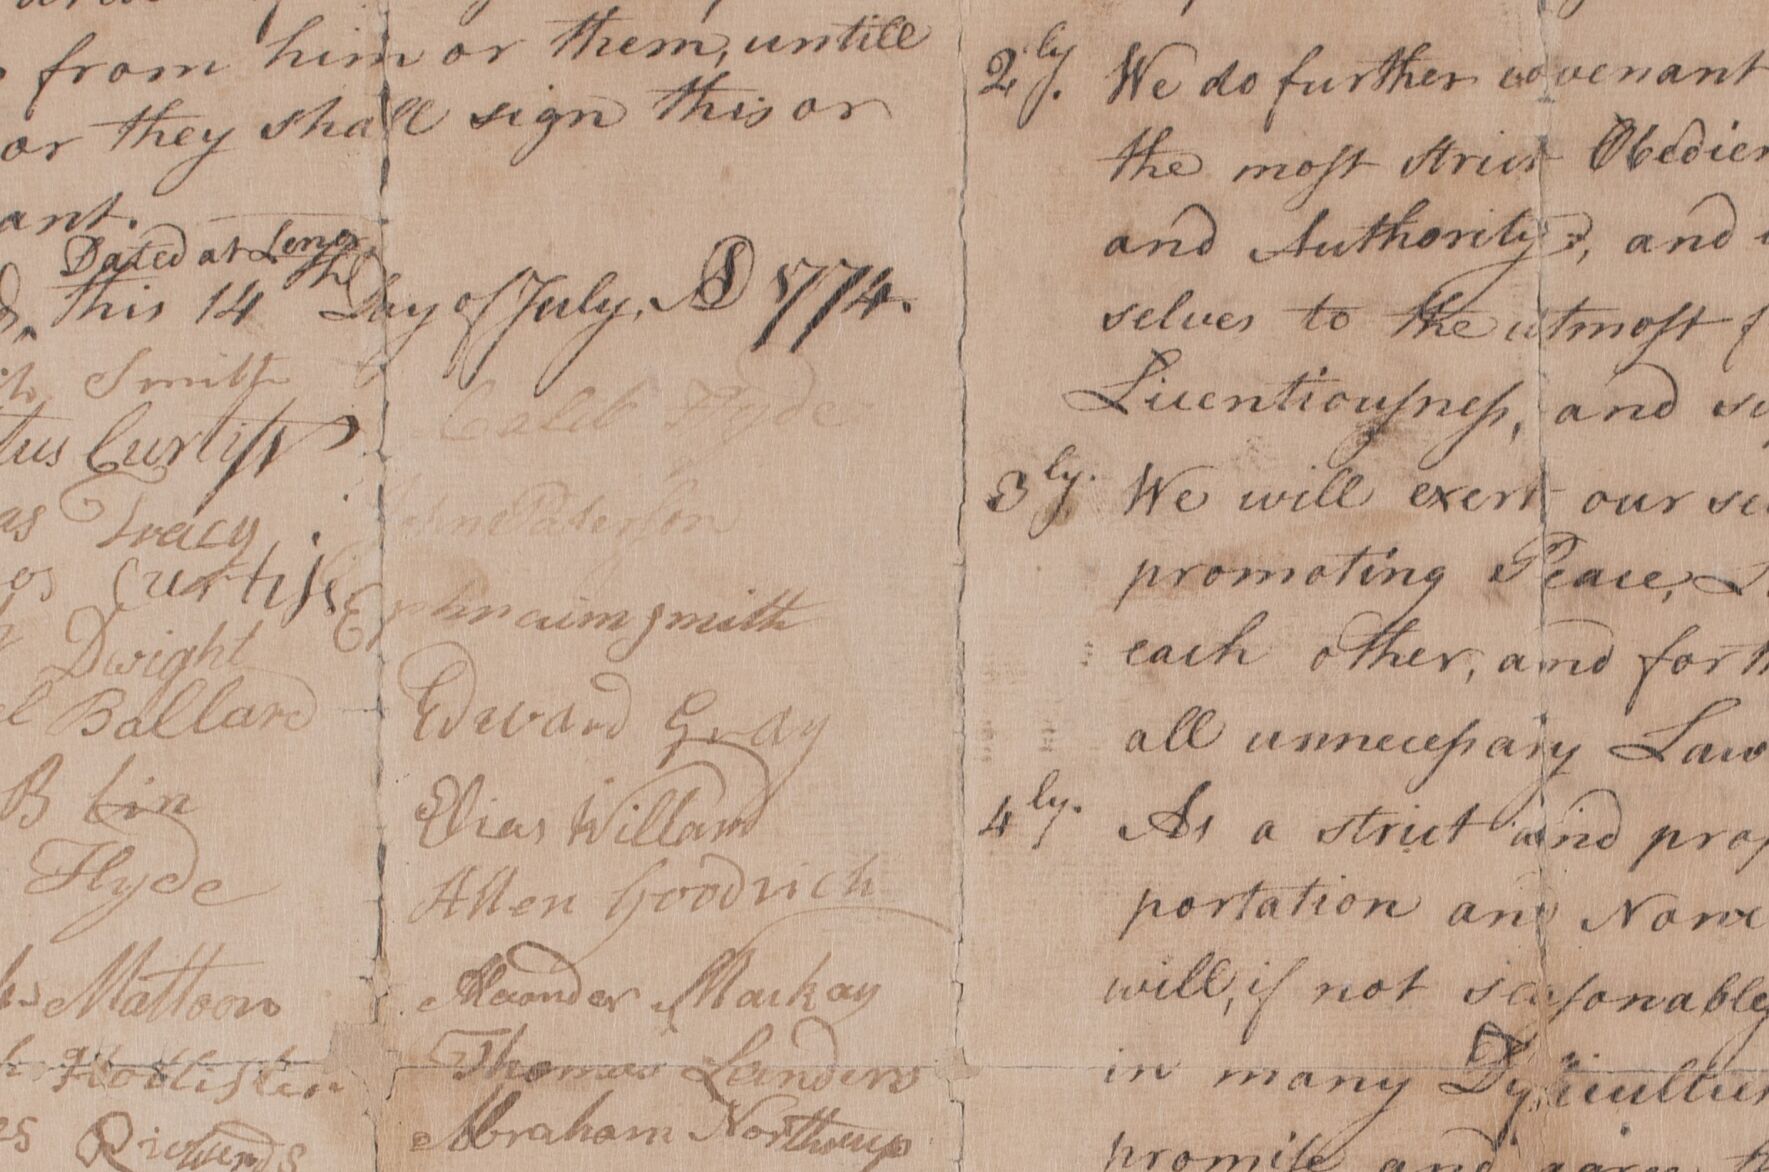 from him or them, untill
or they shall sign this or
ant.
Dated at Lenox
this 14th Day of July, AD 1774.
Smith
Curtiss
Tracy
Curtiss
Dwight
Ballard
B Lin
Hyde
Mattoon
Hollister
Richards
Caleb Hyde
John Paterson
Ephraim Smith
Edward Gray
Elias Willard
Allen Goodrich
Alexander Mackay
Thomas Landers
Abraham Northrup
2ly. We do further covenant
the most strict Obedien
and Authority, and
selves to the utmost
Licentiousness, and su
3ly. We will exert our sel
promoting Peace, L
each other, and for th
all unnecessary Law
4ly. As a strict and prop
portation and None
will, if not seasonably
in many Difficulties
promise and agree th